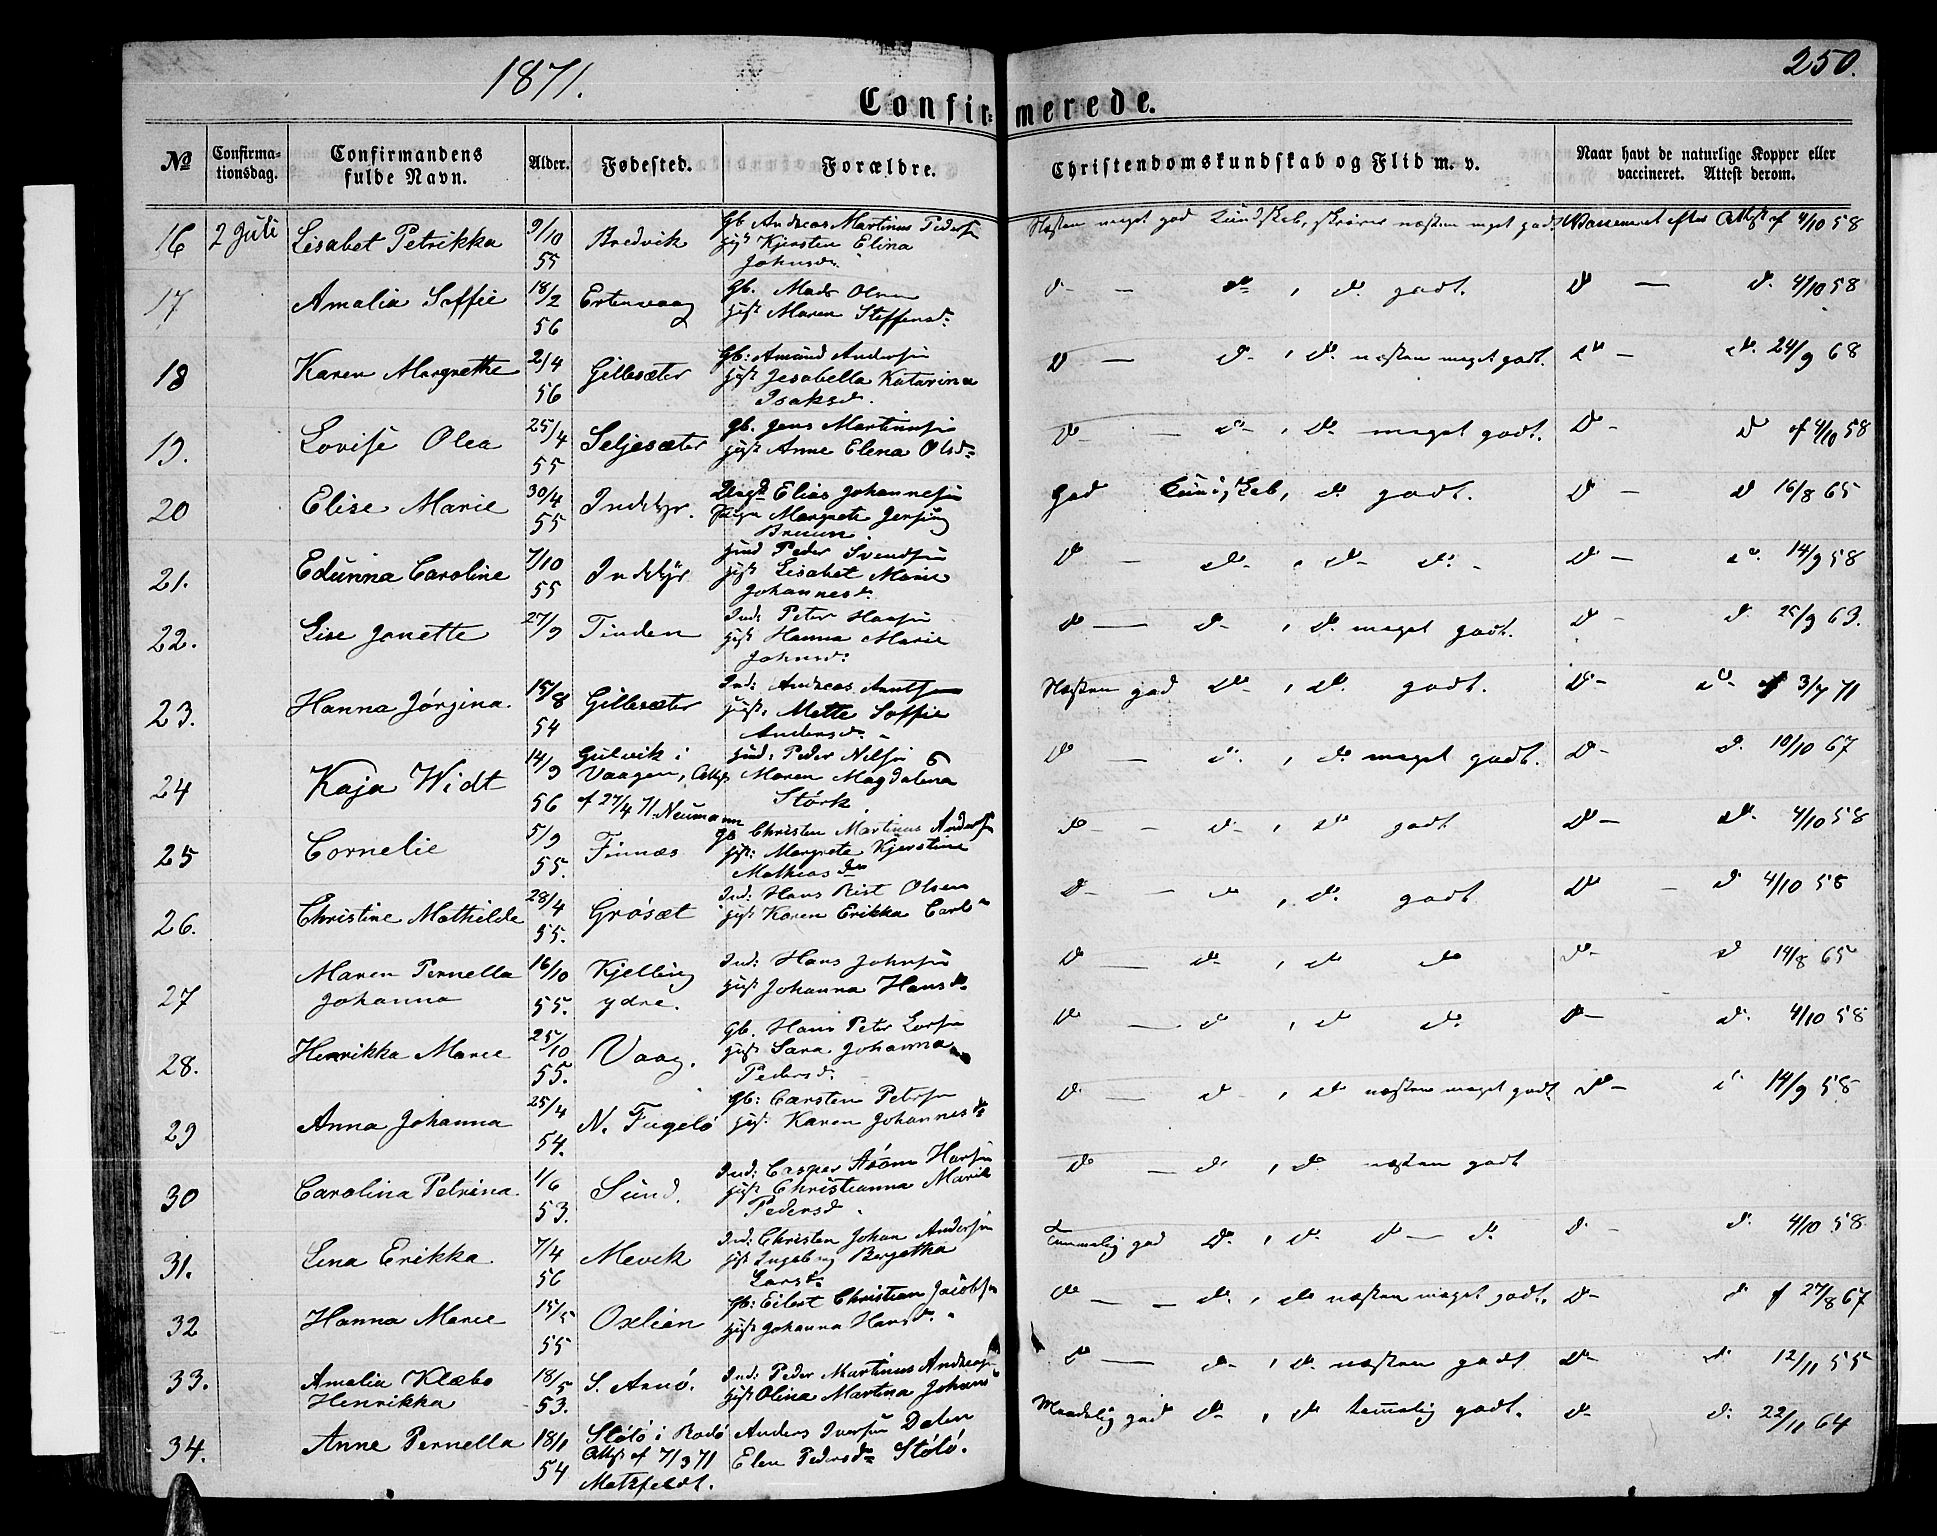 1871.
250.
Confirmerede.
No
Confirma-
tionsdag.
Confirmandens
fulde Navn.
Alder.
Fødested.
Forældre.
Christendomskundskab og Flid m. v.
Naar havt de naturlige Kopper eller
vaccineret. Attest derom.
16 2 Juli Lisabet Petrikka 9/10 55 Bredvik
Gb Andreas Martinus Peders
Kjersten Elina
Johnsd.
Næsten meget god Kundskab, næsten meget godt 4/10 58
17 Amalia Soffie 18/2 56
Gb. Mads Olsen
Maren Steffensd.
d. godt. d d. 4/10 58
18 Karen Margrethe 2/4 56 Gillesæter
Gb: Amund Anders
Jesabella Katarina
Isaksd.
d. næsten meget godt. d. 24/9 68
19. Lovise Olea 25/4 55 Seljesæter
Gb. Jens Martinus
Anne Elena Olsd
d. meget godt. d d 4/10 58
20 Elise Marie 30/4 55 Inddyr.
Elias Johannes
Margrete Jersing
Bruun
God Kundskab, d. godt. d d 16/8 65
21. Edünna Caroline 7/10 55 Inddyr
Peder Svends
Lisabet Marie
Johannesd.
d d. d. d. d d. 14/9 58
22. Lise Jonette 27/9 Tinden
Ind: Peter Haas
Hanna Marie
Johnsd:
d d. d. meget godt. d d. 25/9 63.
23. Hanna Jørgina. 15/8 54 Gillesæter
Ind: Andreas
Mette Soffie
Andersd.
Næsten god d. d. godt. d d. 3/7 71
24 Kaja Widt 14/9 56
Gulvik i
Vaagen, Attst
af 27/4 71. Neumann
Peder Nils
Maren Magdalena
Størk
d d. d. meget godt. d d. 10/10 67
25 Cornelie 5/9 55. Finnæs
Gb Christen Martinus Anders
Margrete Kjerstine
Mathiasd
d d. d godt d d. 4/10 58
26. Christine Mathilde 28/4 55. Grøsæt
Ind: Hans Rist Olsen
Karen Erikka Carls
d d. d. godt d d 4/10 58
27 Maren Pernella
Johanna 16/10 55. Kjelling
ydre.
Ind: Hans Johns
Johanna Hansd.
d d. d d d. d 14/8 65
28. Henrikka Marie 25/10 55. Vaag.
Gb. Hans Peter Lars
Sara Johanna
Pedersd.
d d. d d. d d. 4/10 58
29 Anna Johanna 25/4 54. N. Fugelø
Gb: Carsten Peters
Karen Johannesd
d d. d næsten meget godt. d 14/9 58
30 Carolina Petrina. 1/6 53. Sund.
Ind: Casper Hans
Christianna Marie
Pedersd
d d. d. næsten godt
31. Lina Erikka 7/4 56 Mevik
Ind: Christen Johan Anders
Ingeborg Bergetha
Larsd.
Temmelig god d. d. d d. d d. 4/10 58
32 Hanna Marie 15/5 55 Oxlien
Gb: Eilert Christian Jacobs
Johanna Hansd.
d d. d næsten meget godt. d d 27/8 67
33. Amalia Klæbo
Henrikka 18/5 53. S. Arnø.
Ind: Peder Martinus Andreas
Olina Martina Johans
d d. d. næsten godt d d. 12/11 55
34. Anne Pernella 18/1 54
Støtø i Rødø
Attst af 7/3 71
Metzfeldt.
Anders Ivers Dalen
Elen Pedersd Støtø.
Maadelig god d d temmelig godt. d d. 22/11 64